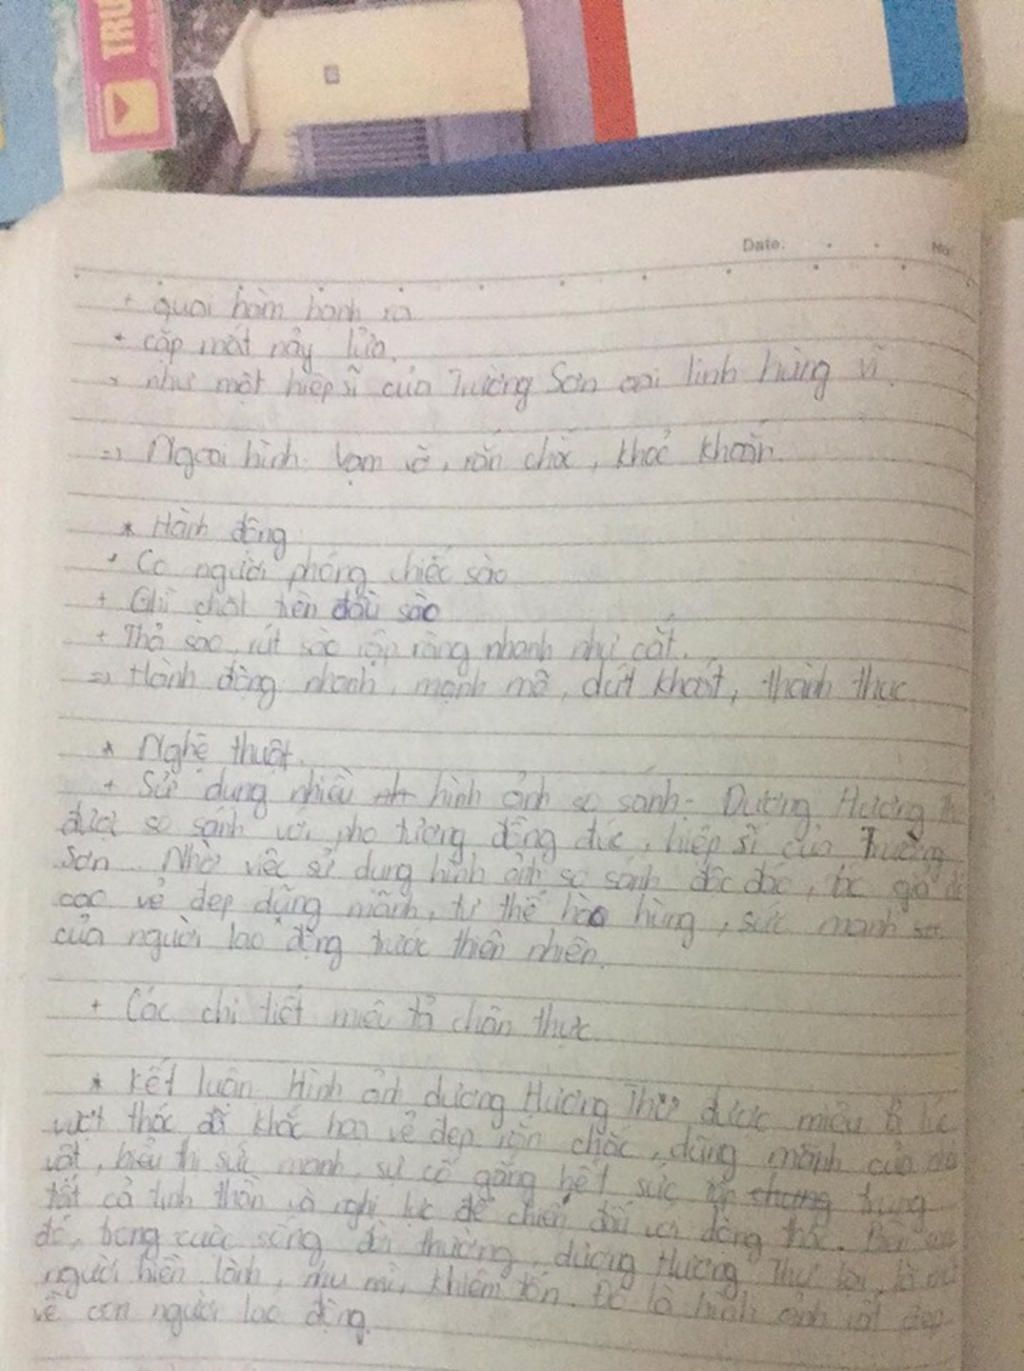 TRU
Date: No
+ quai hàm banh ra
+ cặp mắt nảy lửa.
+ như một hiệp sĩ của Trường Sơn oai linh hùng vĩ.
=> Ngoại hình vạm vỡ, rắn chắc, khoẻ khoắn
* Hành động
+ Co người phóng chiếc sào
+ Ghì chặt trên đầu sào
+ Thả sào, rút sào rập ràng nhanh như cắt.
=> Hành động nhanh, mạnh mẽ, dứt khoát, thành thục
* Nghệ thuật.
+ Sử dụng nhiều hình ảnh so sánh - Dượng Hương Th
được so sánh với pho tượng đồng đúc, hiệp sĩ của Trường
Sơn. Nhờ việc sử dụng hình ảnh so sánh độc đáo, tác giả đề
cao vẻ đẹp dũng mãnh, tư thế hào hùng, sức mạnh
của người lao động trước thiên nhiên.
+ Các chi tiết miêu tả chân thực
* Kết luận Hình ảnh dượng Hương Thư được miêu tả lúc
vượt thác đã khắc hoạ vẻ đẹp rắn chắc, dũng mãnh của
vật, biểu thị sức mạnh, sự cố gắng hết sức tập chung trung
tất cả tinh thần và nghị lực để chiến đấu với dòng thác. Bên
đó, trong cuộc sống đời thường, dượng Hương Thư lại là
người hiền lành, nhu mì, khiêm tốn. Đó là hình ảnh rất đẹp
về con người lao động.